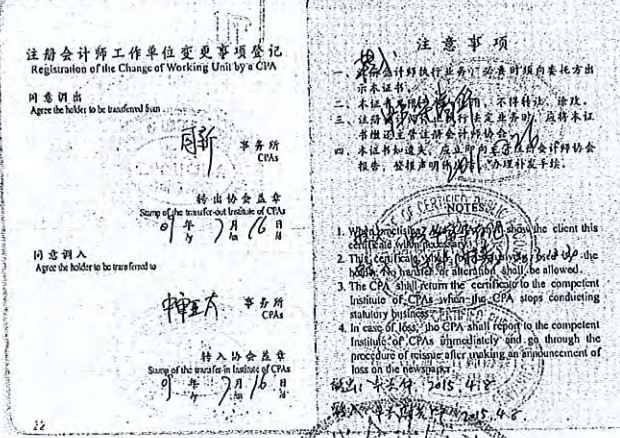 注册会计师工作单位变更事项登记
Registration of the Change of Working Unit by a CPA
同意调出
Agree the holder to be transferred from
事务所
CPAs
转出协会盖章
Stamp of the transfer-out Institute of CPAs
09年7月16日
y m d
同意调入
Agree the holder to be transferred to
中审亚太 事务所
CPAs
转入协会盖章
Stamp of the transfer-in Institute of CPAs
09年7月16日
y m d
12
注意事项
一、注册会计师执行业务,必要时须向委托方出
示本证书。
二、本证书 不得转让、涂改。
三、注册会计师停止执行法定业务时,应将本证
书缴还主管注册会计师协会。
四、本证书如遗失,应立即向主管注册会计师协会
报告,登报声明作废后,办理补发手续。
NOTES
1. When practising, the CPA shall show the client this
certificate when necessary.
2. This certificate shall be exclusively used by the
holder. No transfer or alteration shall be allowed.
3. The CPA shall return the certificate to the competent
Institute of CPAs when the CPA stops conducting
statutory business.
4. In case of loss, the CPA shall report to the competent
Institute of CPAs immediately and go through the
procedure of reissue after making an announcement of
loss on the newspaper.
转出: 2015.4.8
转入: 2015.4.8.